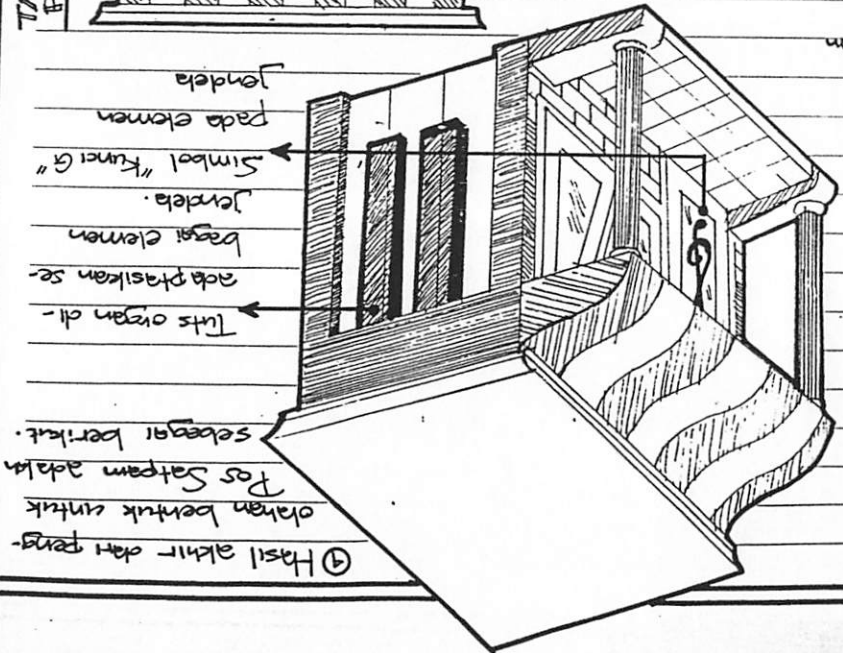 ④ Hasil akhir dari peng-
olahan bentuk untuk
Pos Satpam adalah
sebagai berikut.
Tuts organ di-
adaptasikan se-
bagai elemen
jendela.
Simbol "Kunci G"
pada elemen
jendela